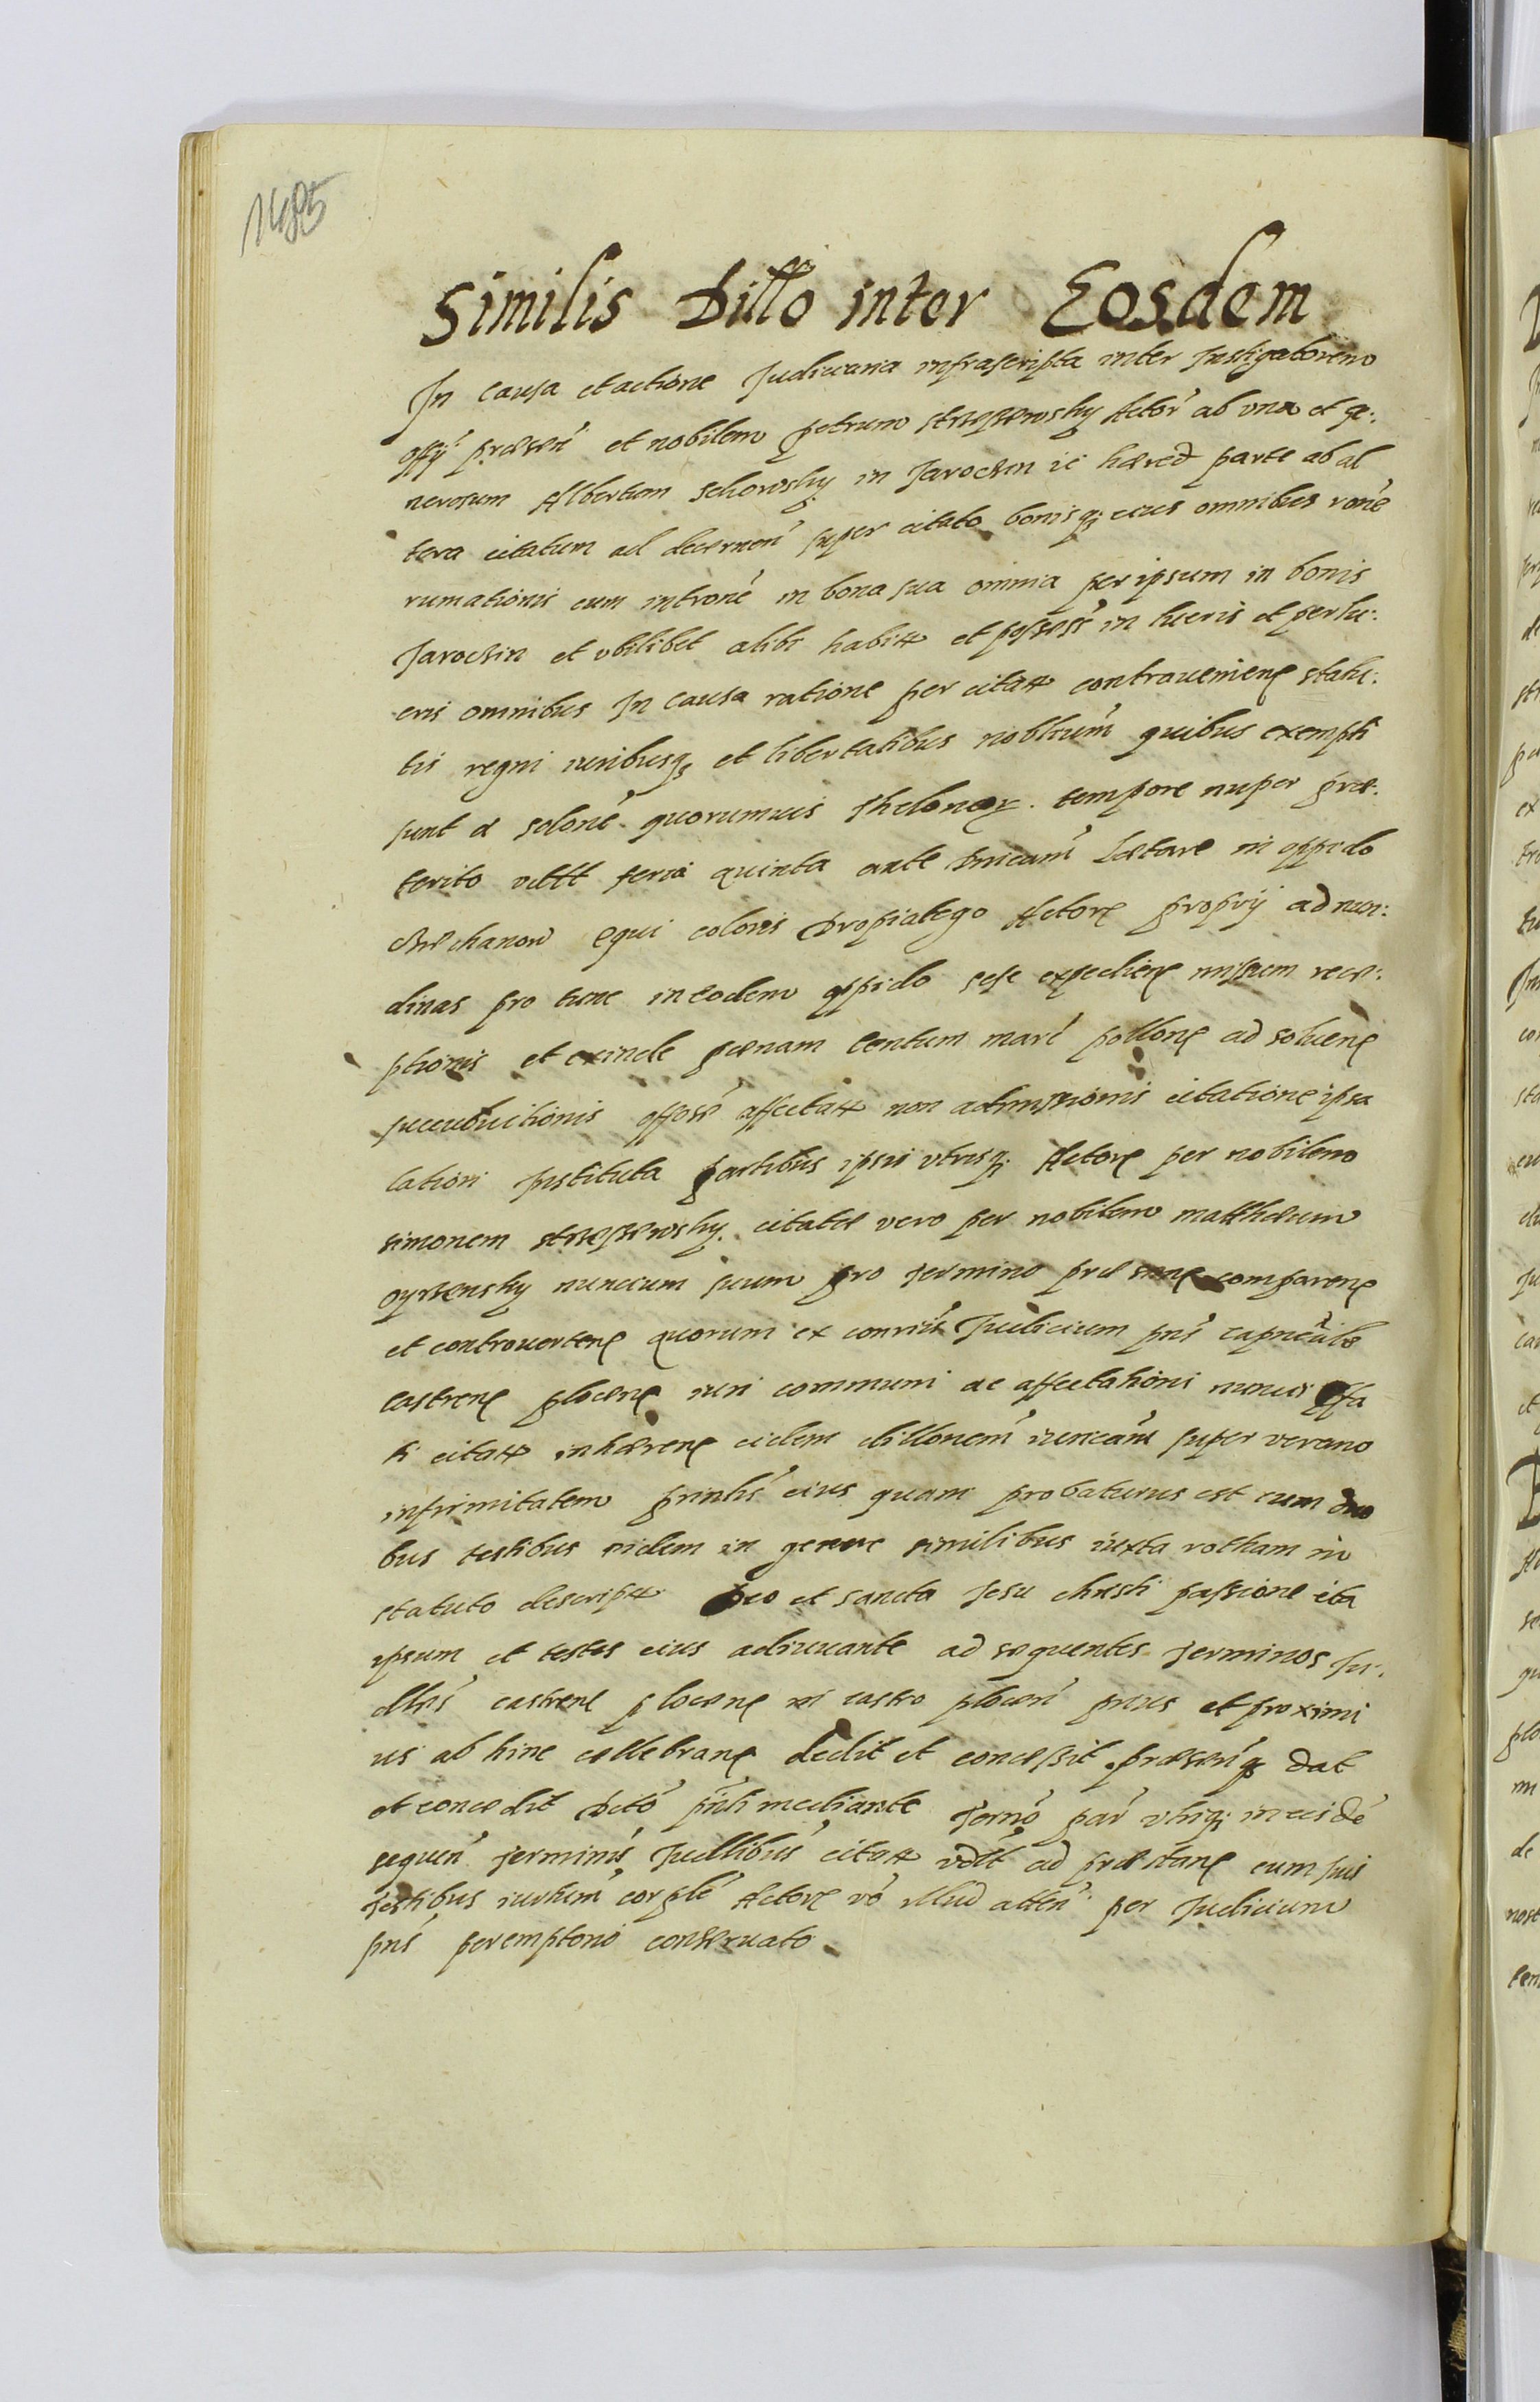 1485
Similis Dillo inter Eosdem
In causa et actione Judiciaria infrascripta inter Instigatorem
offy præsen et nobilem petrum Actor ab una et ge:
nerosum Albertum in Jarochin ic hæred parte ab al
tera citatum ad decernen super citato bonisq eius omnibus rone
rumationis cum introne in bona sua omnia per ipsum in bonis
Jarochin et ubilibet alibi habitt et possess in lucris et perlu:
cris omnibus In causa ratione per citatt contraueniens statu:
tis regni iuribusq et libertatibus nobilium quibus exempti
sunt a solone quorumuis theloneor. tempore nuper præ:
terito feria quinta ante Dnicam Lætare in oppido
equi coloris Actore proprij ad nun:
dinas pro tunc in eodem oppido sese expedien missum rece:
ptionis et exinde pænam centum marc pollone ad soluen
succubuitionis affectatt non admissionis citatione ipsa
lation instituta partibus ipsis utrisq. Actore per nobilem
simonem citata vero per nobilem matthæum
nunccium suum pro termino præ comparen
et controuerten quorum ex conuris Judicium pns capneale
castren plocen iuri communi ac affectationi nuncij
ti citatt inhæren eidem dillonem iuricam super veram
infirmitatem prinlis eius quam probaturus est cum duo
bus testibus sidem in genere similibus iuxta rotham in
statuto descriptt Deo et sancta Jesu christi passione ita
ipsum et testes eius adiuuante ad sequentes terminos Ju:
castren plocen in castro plocen prius et proximi
us ab hinc cellebran dedit et concessit præsen q dat
et concedit Dcto prnli mediante termo par utriq in
sequen terminis Judlibus citatt ad præstan cum suis
testibus iurtum corple Actore vo illud atten per Judicium
pns peremptorio conseruato